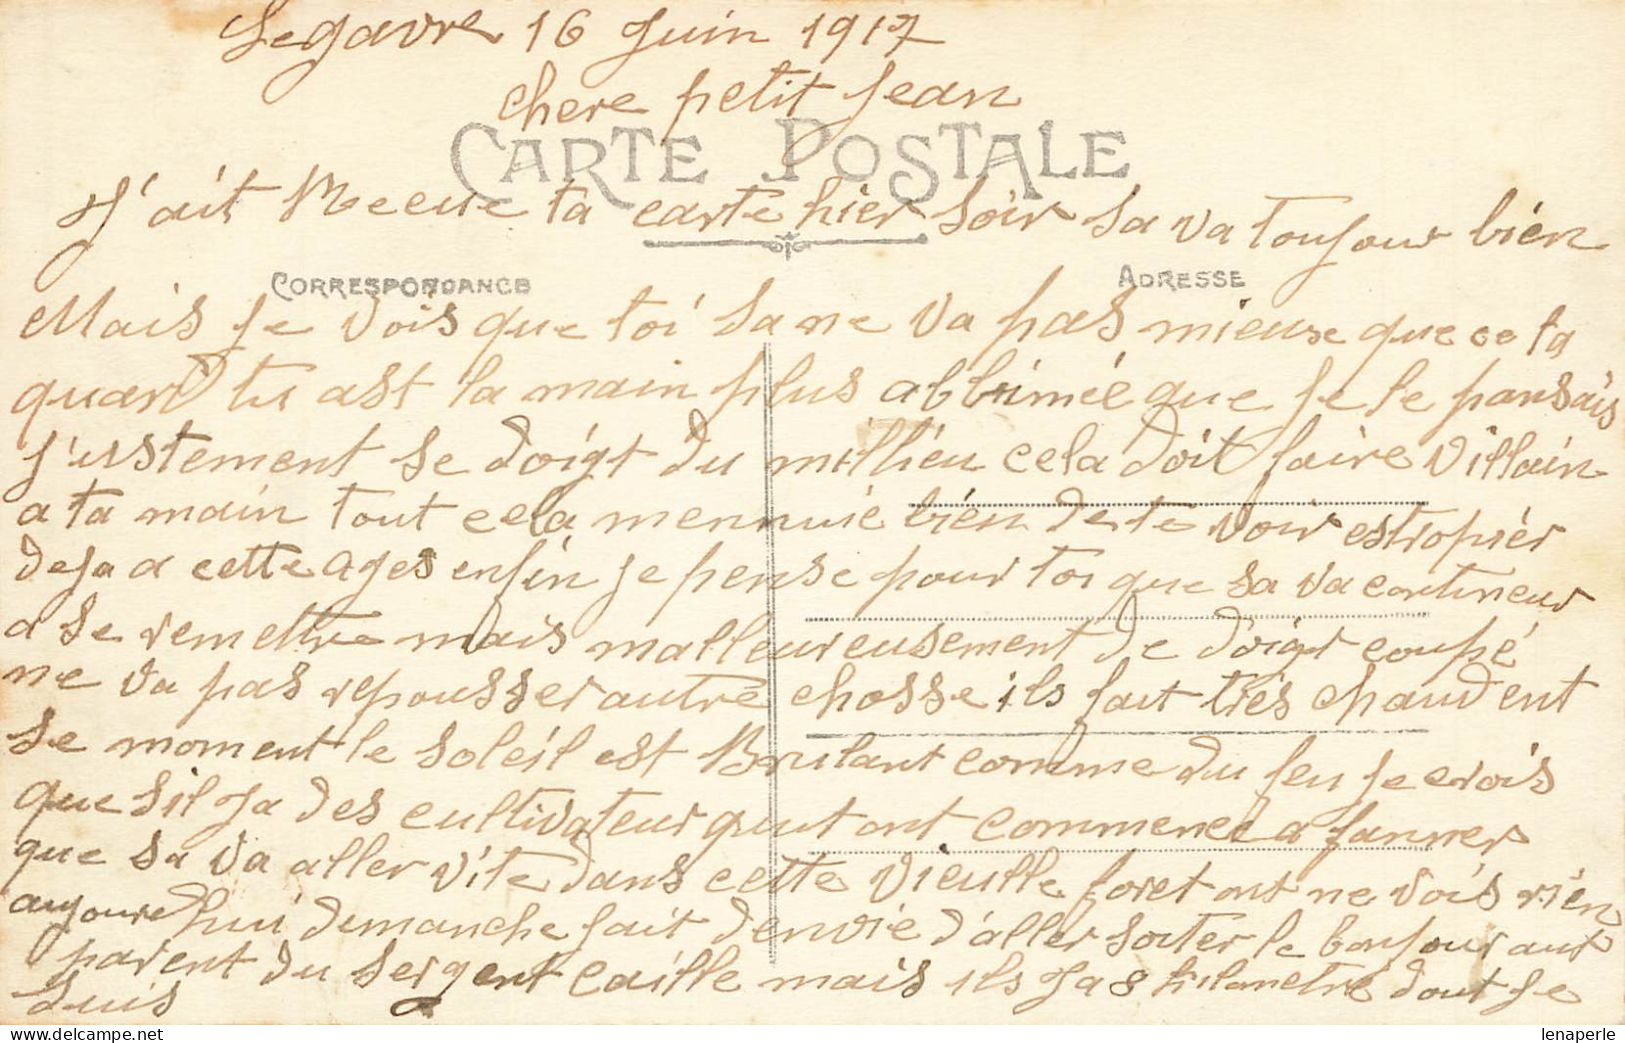 Legavre 16 Juin 1917
chere petit Jean
CARTE POSTALE
J'ait Recue ta carte hier soir sa va toujour bien
CORRESPONDANCE
ADRESSE
Mais je vois que toi sa ne va pas mieuse que ce la
quand tu ast la main plus abbimée que je le pansais
justement le doigt du millieu cela doit faire villain
a ta main tout cela mennuie bien de te voir estropier
deja a cette ages enfin je pense pour toi que sa va contineur
a se remettre mais malleureusement de doigt coupé
ne va pas repousser autre chosse ils fait tres chaud ent
se moment le soleil est Brulant comme du feu je crois
que sil ja des cultivateur quut ont commence a fanner
que sa va aller vite dans cette vieulle foret ont ne vois rien
aujourd hui dimanche fait denvie d'aller soiter le bonjour aux
parent du sergent Caille mais ils ja 8 kilometre dout je
suis
lenaperle